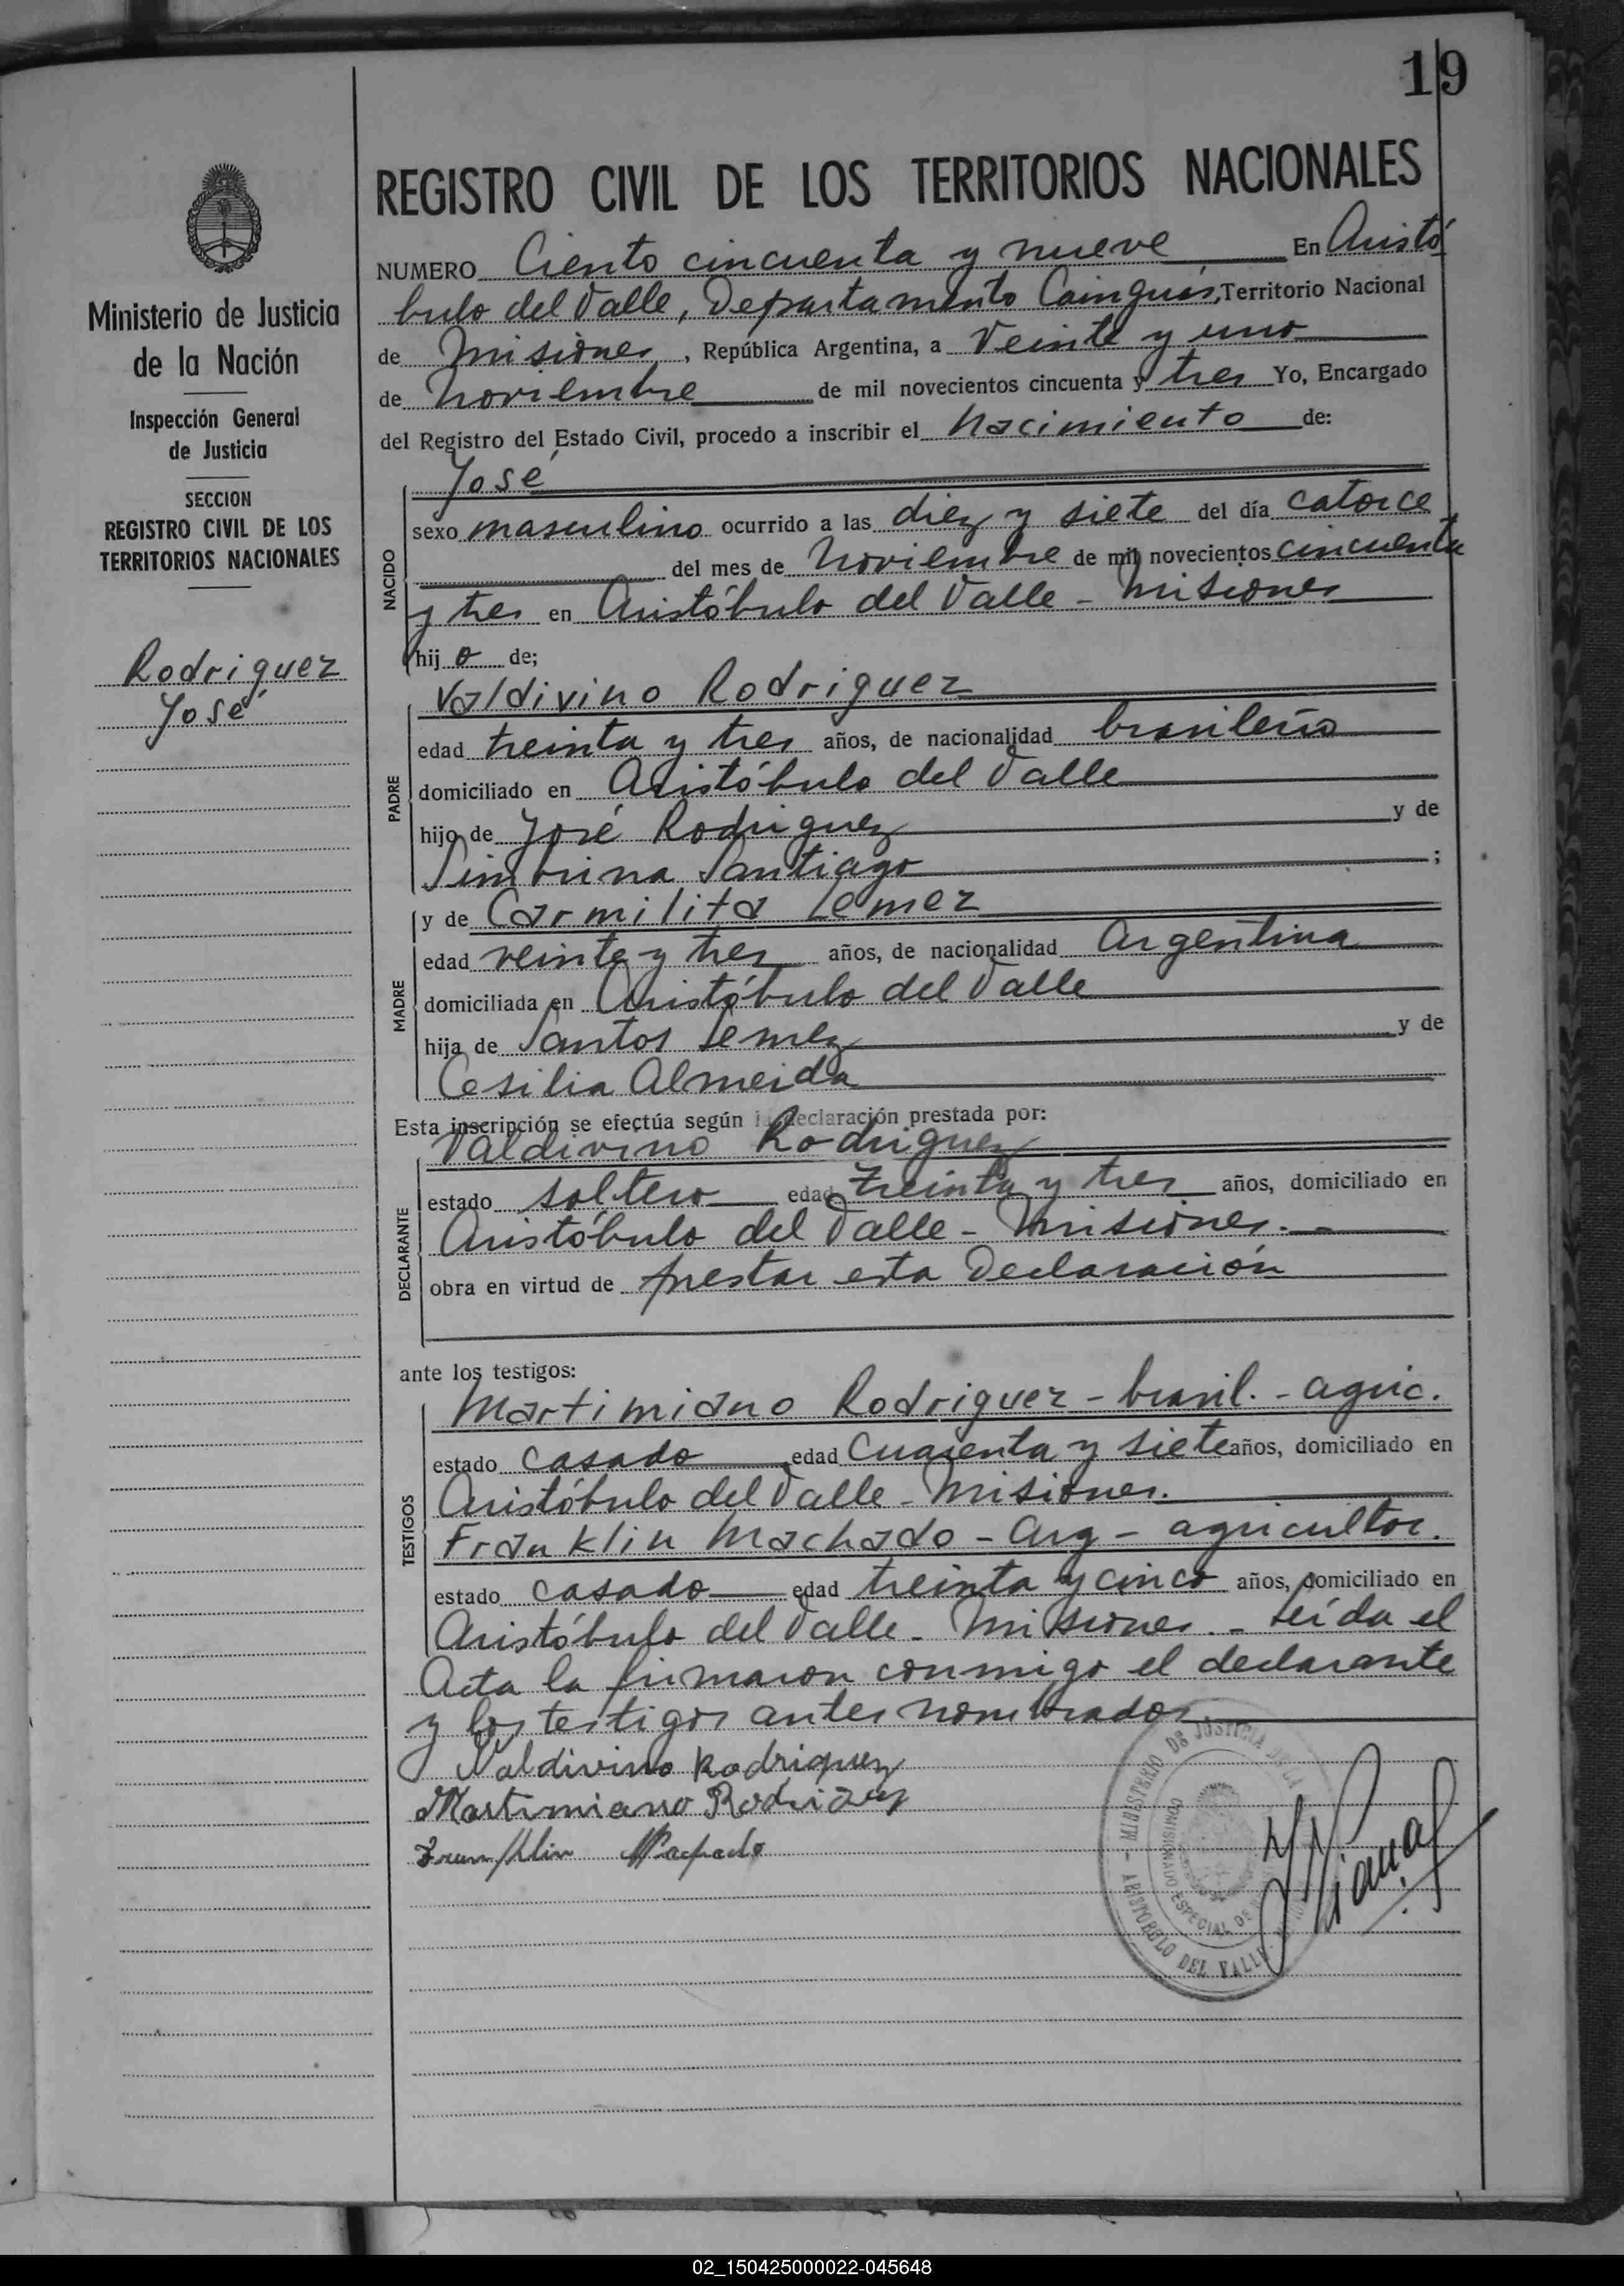 19
REGISTRO CIVIL DE LOS TERRITORIOS NACIONALES
Ministerio de Justicia
de la Nación
Inspección General
de Justicia
SECCION
REGISTRO CIVIL DE LOS
TERRITORIOS NACIONALES
Rodriguez
José
NUMERO Ciento cincuenta y nueve En Aristó
bulo del Valle, Departamento Cainguás, Territorio Nacional
de Misiones, República Argentina, a Veinte y uno
de Noviembre de mil novecientos cincuenta y tres Yo, Encargado
del Registro del Estado Civil, procedo a inscribir el Nacimiento de:
NACIDO
José
sexo masculino ocurrido a las diez y siete del día catorce
del mes de Noviembre de mil novecientos cincuenta
y tres en Aristóbulo del Valle - Misiones
hijo de;
PADRE
Valdivino Rodriguez
edad treinta y tres años, de nacionalidad brasileño
domiciliado en Aristóbulo del Valle
hijo de José Rodriguez y de
Santiago ;
MADRE
y de Carmilita Lemez
edad veinte y tres años, de nacionalidad Argentina
domiciliada en Aristóbulo del Valle
hija de Santos Lemez y de
Cesilia Almeida
Esta inscripción se efectúa según la declaración prestada por:
DECLARANTE
Valdivino Rodriguez
estado soltero edad treinta y tres años, domiciliado en
Aristóbulo del Valle - Misiones.-
obra en virtud de prestar esta Declaración
ante los testigos:
TESTIGOS
Martimiano Rodriguez - brasil. - agric.
estado casado edad Cuarenta y siete años, domiciliado en
Aristóbulo del Valle - Misiones.
Franklin Machado - Arg - agricultor.
estado casado edad treinta y cinco años, domiciliado en
Aristóbulo del Valle - Misiones - Leída el
Acta la firmaron conmigo el declarante
y los testigos antes nombrados
Valdivino Rodriguez
Martimiano Rodriguez
Franklin Machado
MINISTERIO DE JUSTICIA DE LA
COMISIONADO ESPECIAL DE
ARISTOBULO DEL VALLE
02_150425000022-045648